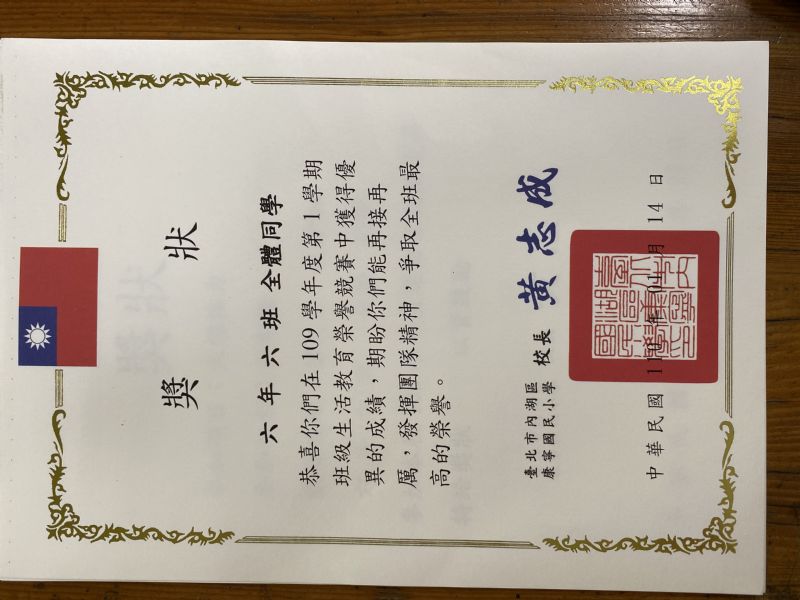 獎狀
六年六班 全體同學
恭喜你們在109學年度第1學期
班級生活教育榮譽競賽中獲得優
異的成績，期盼你們能再接再
厲，發揮團隊精神，爭取全班最
高的榮譽。
臺北市內湖區
康寧國民小學
校長 黃志成
中華民國 110 年 01 月 14 日